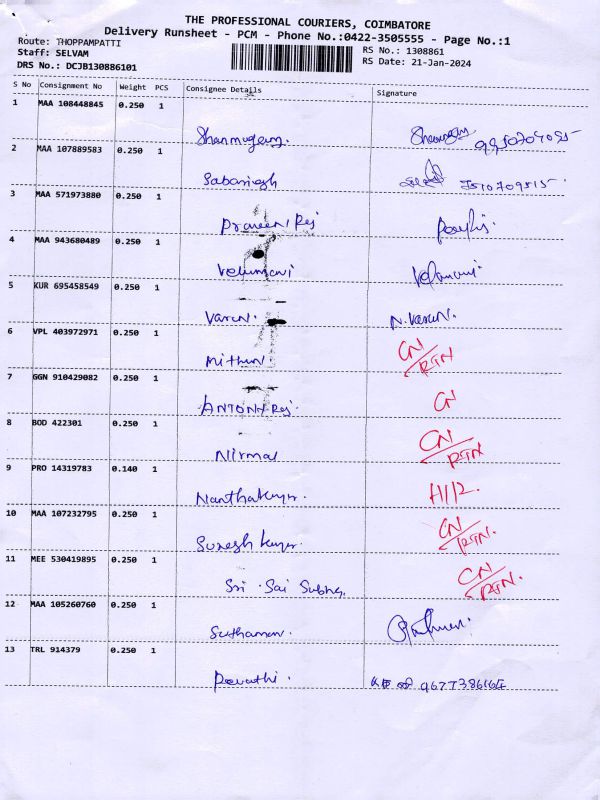 THE PROFESSIONAL COURIERS, COIMBATORE
Delivery Runsheet - PCM - Phone No.:0422-3505555 - Page No.:1
Route: THOPPAMPATTI
Staff: SELVAM
DRS No.: DCJB130886101
RS No.: 1308861
RS Date: 21-Jan-2024
S No Consignment No Weight PCS Consignee Details Signature
1 MAA 108448845 0.250 1
Shanmugam.
2 MAA 107889583 0.250 1
Sabarigsh
3 MAA 571973880 0.250 1
Praveen Raj
4 MAA 943680489 0.250 1
Velumani Velumani
5 KUR 695458549 0.250 1
Varun. N. Varun.
6 VPL 403972971 0.250 1
Mithun. CN/RTN
7 GGN 910429082 0.250 1
ANTONY Raj. CN
8 BOD 422301 0.250 1
Nirmal CN/RTN
9 PRO 14319783 0.140 1
Nanthakumar H/12.
10 MAA 107232795 0.250 1
Suresh kumar. CN/RTN.
11 MEE 530419895 0.250 1
Sri . Sai Subha. CN/RTN.
12 MAA 105260760 0.250 1
13 TRL 914379 0.250 1
Revathi.